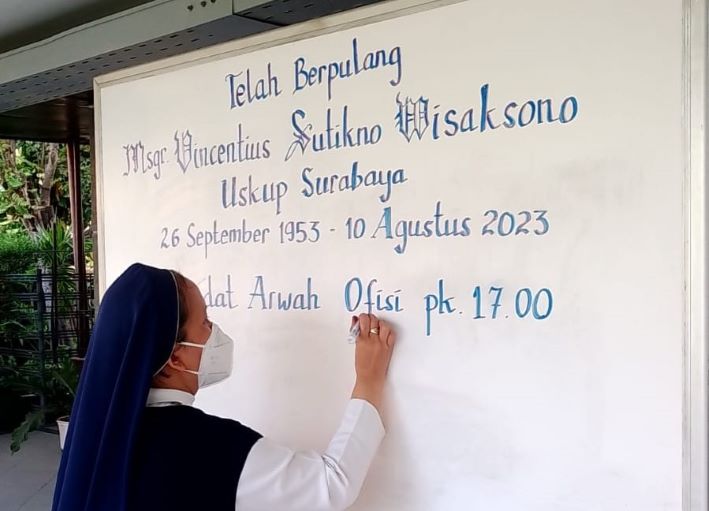 Telah Berpulang
Msgr. Vincentius Sutikno Wisaksono
Uskup Surabaya
26 September 1953 - 10 Agustus 2023
Arwah Ofisi pk. 17.00